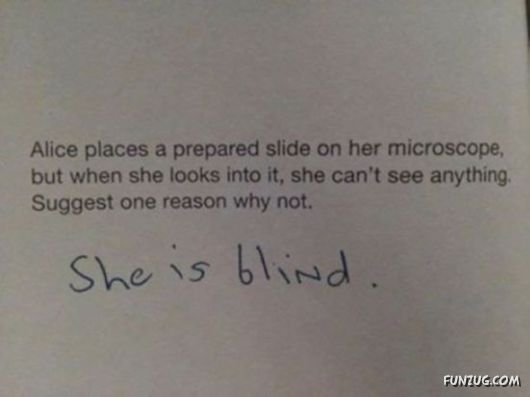 Alice places a prepared slide on her microscope,
but when she looks into it, she can't see anything.
Suggest one reason why not.
She is bliNd.
FUNZUG.COM